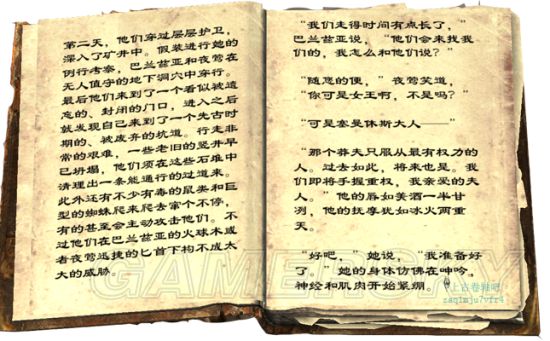 第二天，他们穿过层层护卫，
深入了矿井中。假装进行她的
例行考察，巴兰兹亚和夜莺在
无人值守的地下洞穴中穿行。
最后他们来到了一个看似被遗
忘的、封闭的门口，进入之后
就发现自己来到了一个先古时
期的、被废弃的坑道。行走非
常的艰难，一些老旧的竖井早
已坍塌，他们须在这些石堆中
清理出一条能通行的过道来。
此外还有不少有毒的鼠类和巨
型的蜘蛛爬来爬去窜个不停，
有的甚至会主动攻击他们。不
过他们在巴兰兹亚的火球术或
者夜莺迅捷的匕首下构不成太
大的威胁。
“我们走得时间有点长了，”
巴兰兹亚说，“他们会来找我
们的，我怎么和他们说？”
“随您的便，”夜莺笑道，
“你可是女王啊，不是吗？”
“可是塞曼休斯大人——”
“那个莽夫只服从最有权力的
人。过去如此，将来也是。我
们即将手握重权，我亲爱的夫
人。”他的唇如美酒一半甘
冽，他的抚摩犹如冰火两重
天。
“好吧，”她说，“我准备好
了。”她的身体仿佛在呻吟，
神经和肌肉开始紧绷。
@上古卷轴吧
zaq1mju7vfr4
GAMERSKY